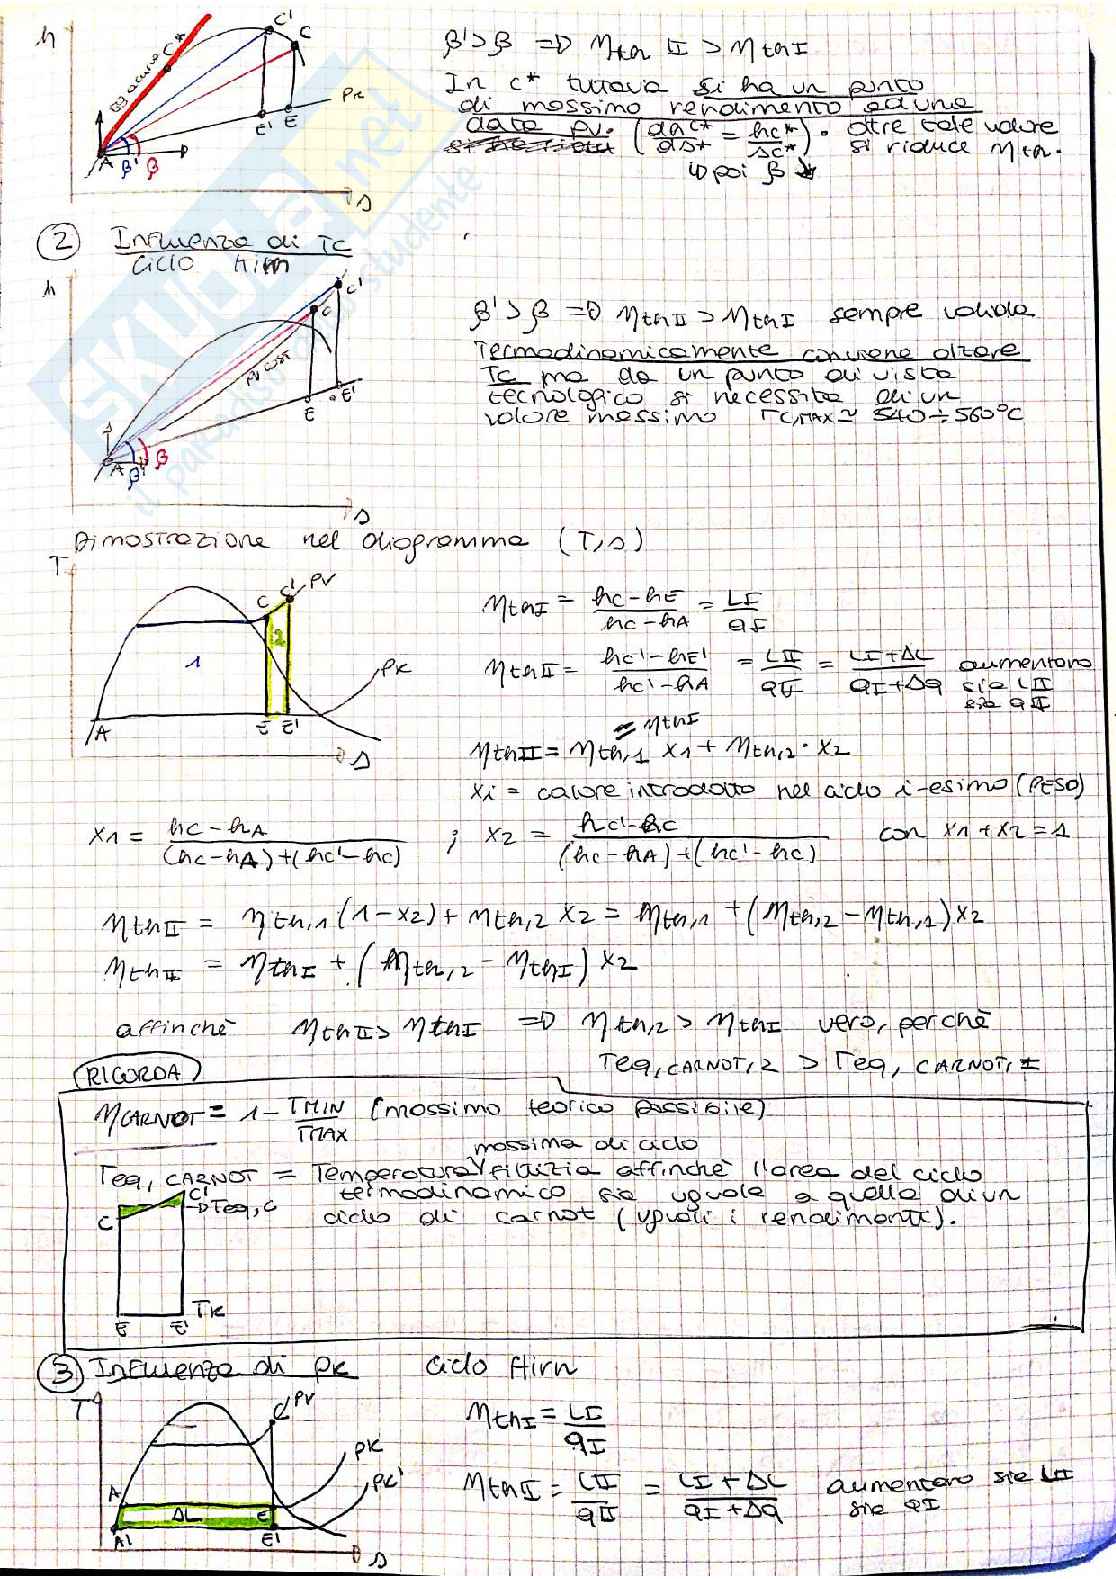 h
C'
C
C*
PK
E'
E
A
β'
β
s
β'>β => ηth II > ηth I
In C* tuttavia si ha un punto
di massimo rendimento ad una
data pv. (dhC*/dS* = hC*/SC*). Oltre tale valore
si riduce ηth.
poi β ↓
② Influenza di TC
Ciclo Hirn
h
C'
C
E
E'
A
β'
β
s
β'>β => ηth II > ηth I sempre valida
Termodinamicamente conviene alzare
TC ma da un punto di vista
tecnologico si necessita di un
valore massimo TC,MAX ≃ 540÷560°C
Dimostrazione nel diagramma (T,s)
T
C
C'
PV
1
2
PK
A
E
E'
s
ηth I = (hC-hE)/(hC-hA) = LI/QI
ηth II = (hC'-hE')/(hC'-hA) = LII/QII = (LI+ΔL)/(QI+ΔQ) aumentano
sia LII
sia QII
= ηth I
ηth II = ηth,1 x1 + ηth,2 · x2
xi = calore introdotto nel ciclo i-esimo (PESO)
x1 = (hC-hA)/((hC-hA)+(hC'-hC)) ; x2 = (hC'-hC)/((hC-hA)+(hC'-hC)) con x1+x2=1
ηth II = ηth,1(1-x2)+ηth,2 x2 = ηth,1 + (ηth,2 - ηth,1)x2
ηth II = ηth I + (ηth,2 - ηth I) x2
affinchè ηth II > ηth I => ηth,2 > ηth I vero, perchè
Teq,CARNOT,2 > Teq,CARNOT,1
RICORDA
ηCARNOT = 1 - TMIN/TMAX (massimo teorico possibile)
massima di ciclo
Teq,CARNOT = Temperatura fittizia affinchè l'area del ciclo
termodinamico sia uguale a quella di un
ciclo di Carnot (uguali i rendimenti).
C
C'
Teq,C
TK
E
E'
③ Influenza di PK Ciclo Hirn
T
C
PV
PK
PK'
A
ΔL
E
A'
E'
s
ηth I = LI/QI
ηth II = LII/QII = (LI+ΔL)/(QI+ΔQ) aumentano sia LII
sia QI